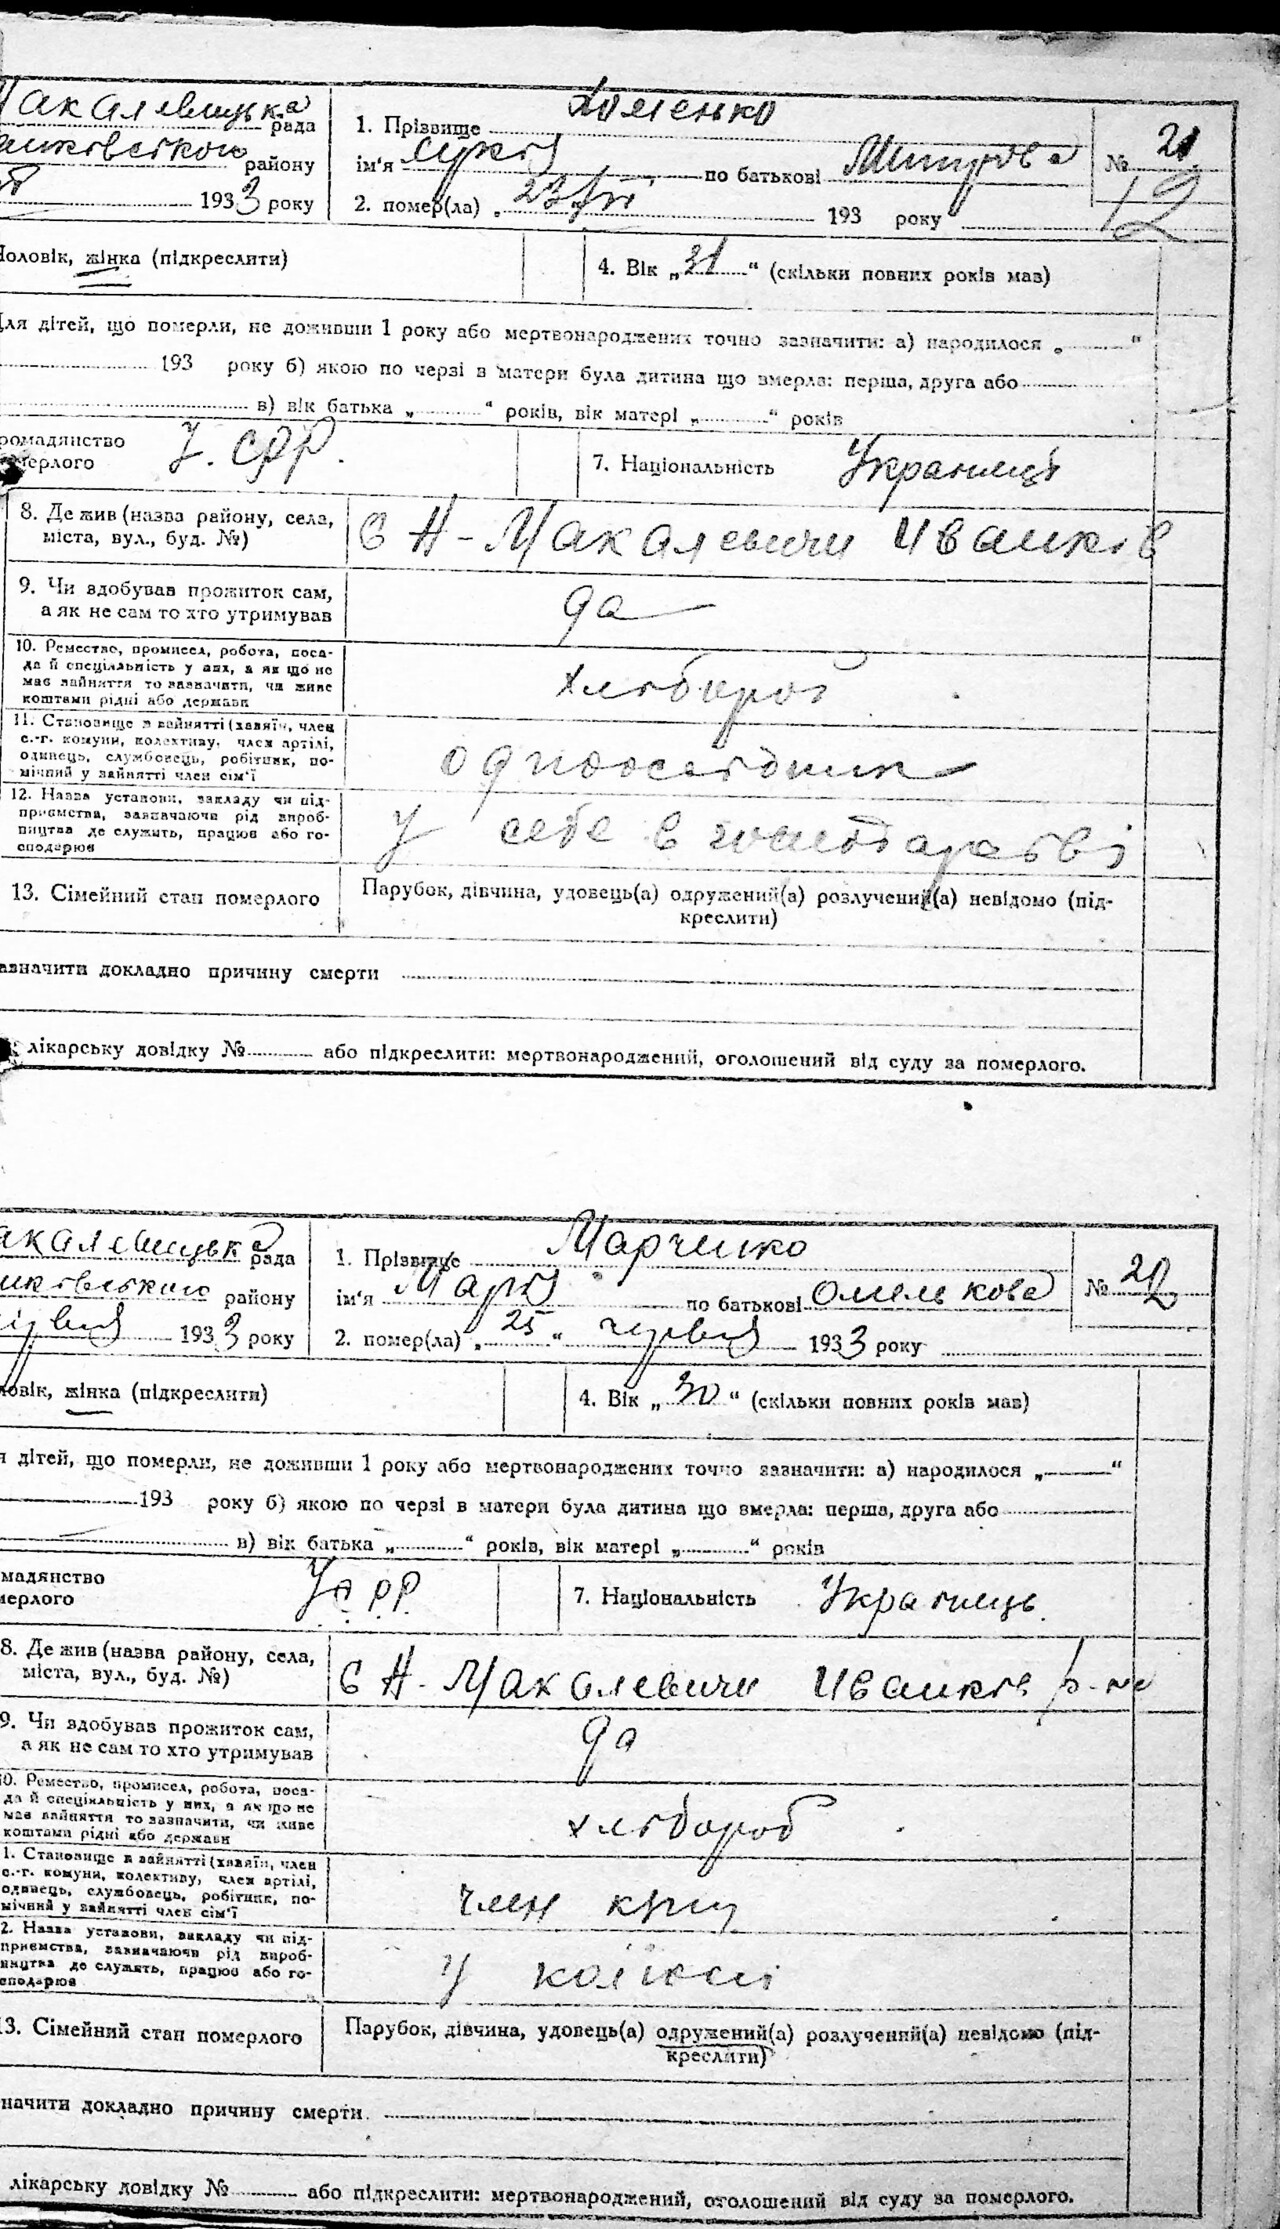 Макалевицька рада
1. Прізвище Хоменко
№ 21
районy
ім'я по батькові Митрова
1933 року
2. помер(ла) „ 23/VI 193 року
12
Чоловік, жінка (підкреслити)
4. Вік „31“ (скільки повних років має)
Для дітей, що померли, не доживши 1 року або мертвонароджених точно зазначити: а) народилося „ “
193 року б) якою по черзі в матери була дитина що вмерла: перша, друга або
в) вік батька „ “ років, вік матері „ “ років
громадянство
померлого
У. СРР.
7. Національність Українець
8. Де жив (назва району, села,
міста, вул., буд. №)
С Н-Макалевичи Иванків
9. Чи здобував прожиток сам,
а як не сам то хто утримував
да
10. Ремество, промисел, робота, поса-
да й спеціяльність у них, а як що не
має зайняття то зазначити, чи живе
коштами рідні або держави
хлібороб
11. Становище в зайнятті (хазяїн, член
с.-г. комуни, колективу, член артілі,
одинець, службовець, робітник, по-
мічний у зайнятті член сім'ї
одноосібник
12. Назва установи, закладу чи під-
приємства, зазначаючи рід вироб-
ництва де служить, працює або го-
сподарює
У себе в господарстві
13. Сімейний стан померлого
Парубок, дівчина, удовець(а) одружений(а) розлучений(а) невідомо (під-
креслити)
зазначити докладно причину смерти
лікарську довідку № або підкреслити: мертвонароджений, оголошений від суду за померлого.
Макалевицька рада
1. Прізвище Марченко
№ 22
району
ім'я Марія по батькові Омелькова
червня 1933 року
2. помер(ла) „25“ червня 1933 року
Чоловік, жінка (підкреслити)
4. Вік „30“ (скільки повних років має)
дітей, що померли, не доживши 1 року або мертвонароджених точно зазначити: а) народилося „ “
193 року б) якою по черзі в матери була дитина що вмерла: перша, друга або
в) вік батька „ “ років, вік матері „ “ років
громадянство
померлого
УСРР
7. Національність Українець.
8. Де жив (назва району, села,
міста, вул., буд. №)
С Н-Макалевичи Иванків р-ну
9. Чи здобував прожиток сам,
а як не сам то хто утримував
да
10. Ремество, промисел, робота, поса-
да й спеціяльність у них, а як що не
має зайняття то зазначити, чи живе
коштами рідні або держави
хлібороб
11. Становище в зайнятті (хазяїн, член
с.-г. комуни, колективу, член артілі,
одинець, службовець, робітник, по-
мічний у зайнятті член сім'ї
член
12. Назва установи, закладу чи під-
приємства, зазначаючи рід вироб-
ництва де служить, працює або го-
сподарює
У колгоспі
13. Сімейний стан померлого
Парубок, дівчина, удовець(а) одружений(а) розлучений(а) невідомо (під-
креслити)
зазначити докладно причину смерти
лікарську довідку № або підкреслити: мертвонароджений, оголошений від суду за померлого.